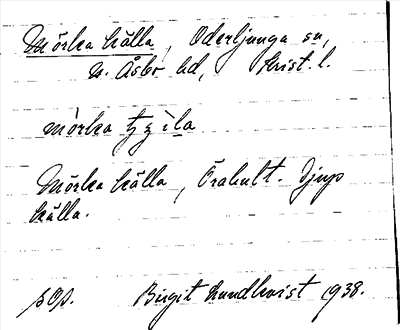 Mörka källa, Oderljunga sn,
N. Åsbo hd, Krist. l.
mörka
Mörka källa, Örahult. Djup
källa.
Birgit Lundkvist 1938.